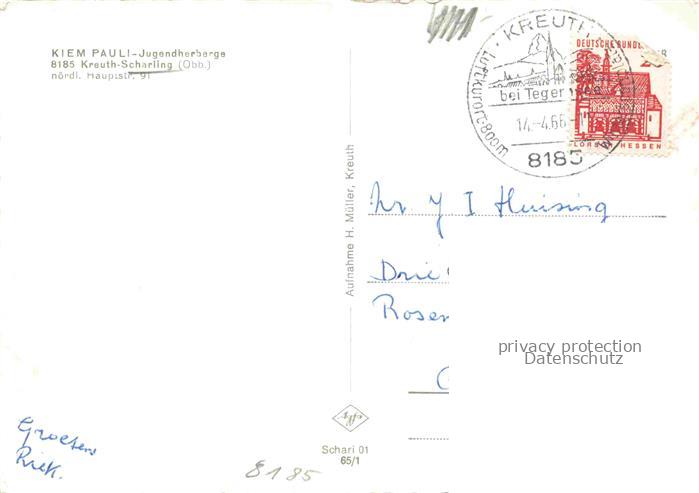 KIEM PAULI-Jugendherberge
8185 Kreuth-Scharling (Obb.)
nördl. Hauptstr. 91
KREUTH
Luftkurort-800m
bei Teger
14.-4.66
8185
DEUTSCHE BUND
LORSCH HESSEN
Aufnahme H. Müller, Kreuth
Hr. Y I Huising
Drie
Rosen
privacy protection
Datenschutz
Groeten
Riek.
Schari 01
65/1
8185